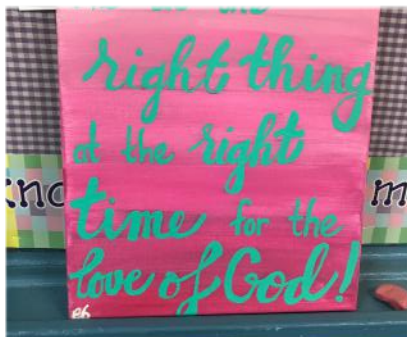 right thing
at the right
time for the
love of God!